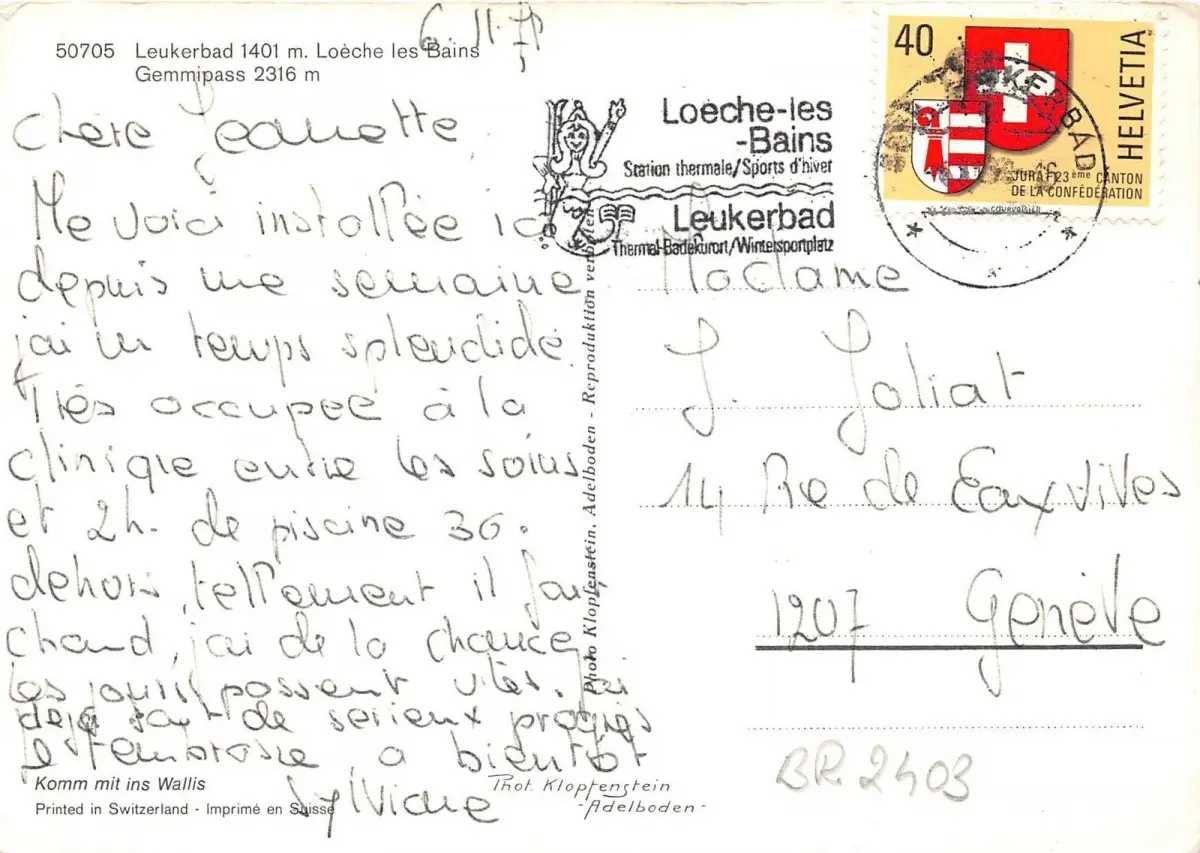 6.11.78
50705 Leukerbad 1401 m. Loèche les Bains
Gemmipass 2316 m
Chère Jeannette
Me voici installée ici
depuis une semaine
j'ai un temps splendide.
Très occupée à la
clinique entre les soins
et 2h. de piscine 36°
dehors, tellement il fait
chaud, j'ai de la chance
les jours passent vites. J'ai
déjà fait de serieux progrès
je t'embrasse, a bientôt
Sylviane
Komm mit ins Wallis
Printed in Switzerland - Imprimé en Suisse
Phot. Klopfenstein
-Adelboden-
Photo Klopfenstein, Adelboden - Reproduktion verboten
Loèche-les
-Bains
Station thermale/Sports d'hiver
Leukerbad
Thermal-Badekurort/Wintersportplatz
40
HELVETIA
JURA 23ème CANTON
DE LA CONFÉDÉRATION
COURVOISIER
Madame
J. Joliat
14 Rue de Eaux Vives
1207 Genève
BR 2403